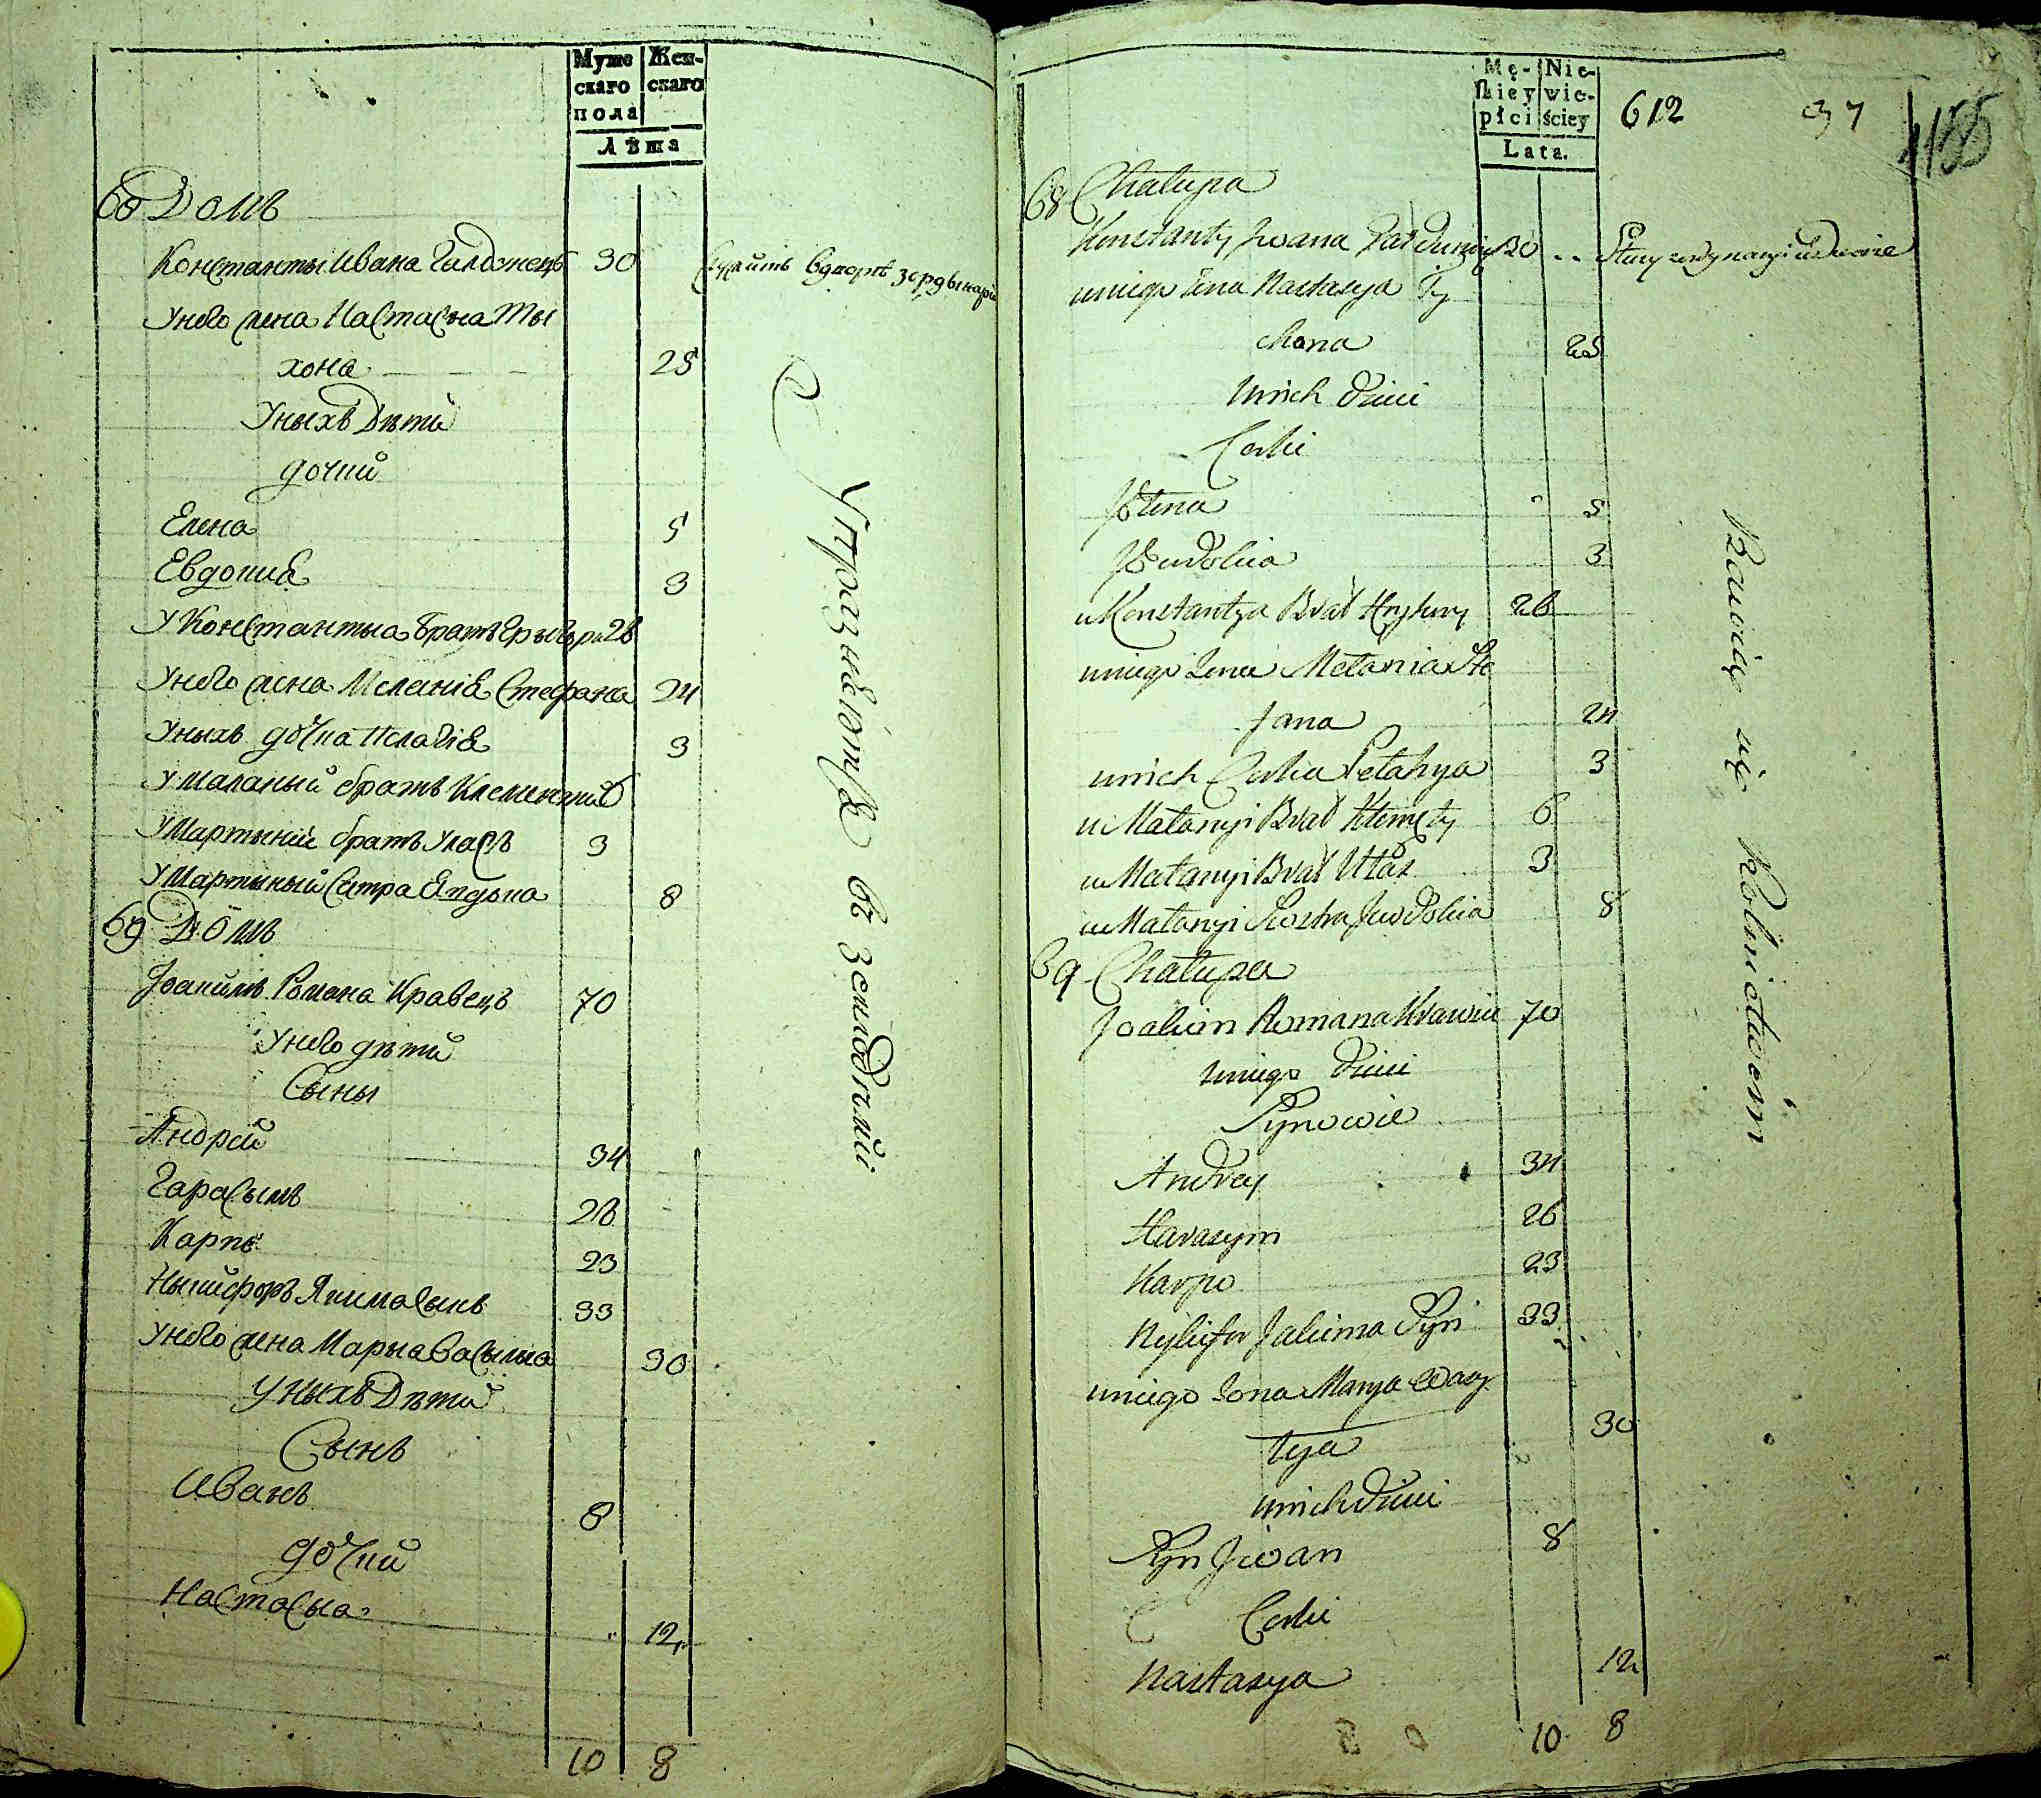 Муже
скаго
пола
Жен-
скаго
Лѣта
68 Домъ
Константы Ивана Галдонецъ 30
Служитъ вдворѣ зордынаріи
Унего жена Настасыа Ты
хона 25
Уныхъ Дѣти
дочки
Елена 5
Евдокиа 3
У Константыа братъ Грыгоръ 26
Унего жена Меланіа Стефана 24
Уныхъ дочка Пелагіа 3
У Маланый братъ Клементий 6
У Мартыній братъ Уласъ 3
У Мартыный Сестра Евдокиа 8
69 Домъ
Іоакимъ Романа Кравецъ 70
Унего дѣти
Сыны
Андрей 34
Гарасымъ 26
Карпо 23
Ныкифоръ Якима сынъ 33
Унего жена Марыа Васылыа 30
Уныхъ Дѣти
Сынъ
Иванъ 8
дочки
Настасыа 12
10 8
Упражнѣютса въ земле
Mę-
skiey
płci
Nie-
wie-
ściey
Lata.
612
37
1155
68 Chałupa
Konstanty Jwana 30
Służy zordynaryi udworze
uniego żona Nastasya Ty
chona 25
Unich dzieci
Corki
Jelena 5
Jewdokia 3
u Konstantya Brat Hryhory 26
uniego żona Melania Ste
fana 24
unich Corka Pelahya 3
u Małanyi Brat Klemęty 6
u Małanyi Brat Ułas 3
u Małanyi Siostra Jewdokia 8
69 Chałupa
Joakim Romana Krawiec 70
uniego dzieci
Synowie
Andrey 34
Harasym 26
Karpo 23
Nykifor Jakima Syn 33
uniego żona Marya Wasy
lya 30
unich dzieci
Syn Jwan 8
Corki
Nastasya 12
10 8
Bawią się Rolnictwem